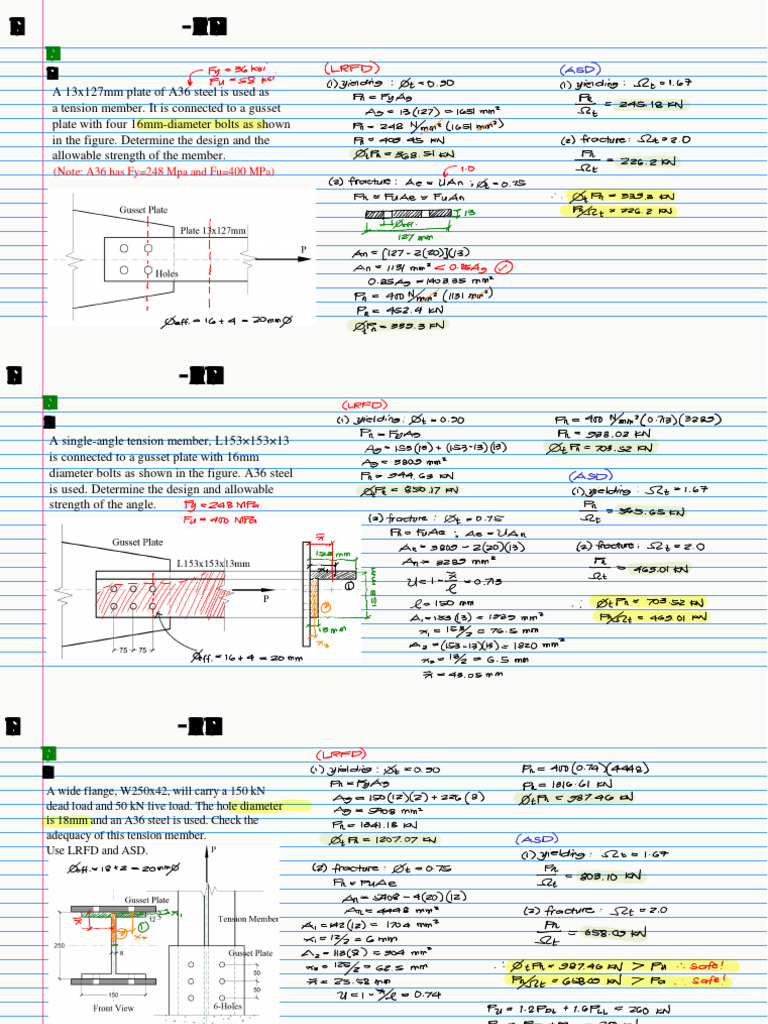 Fy = 36 ksi
Fu = 58 ksi
A 13x127mm plate of A36 steel is used as
a tension member. It is connected to a gusset
plate with four 16mm-diameter bolts as shown
in the figure. Determine the design and the
allowable strength of the member.
(Note: A36 has Fy=248 Mpa and Fu=400 MPa)
Gusset Plate
Plate 13x127mm
P
Holes
Øeff. = 16 + 4 = 20mmØ
(LRFD)
(1) yielding : Øt = 0.90
Pn = FyAg
Ag = 13(127) = 1651 mm²
Pn = 248 N/mm² (1651 mm²)
Pn = 409.45 kN
ØtPn = 368.51 kN
1.0
(2) fracture : Ae = UAn ; Øt = 0.75
Pn = FuAe = FuAn
13
Øeff.
127 mm
An = [127 - 2(20)](13)
An = 1131 mm² < 0.85Ag
0.85Ag = 1403.35 mm²
Pn = 400 N/mm² (1131 mm²)
Pn = 452.4 kN
ØtPn = 339.3 kN
(ASD)
(1) yielding : Ωt = 1.67
Pn/Ωt = 245.18 kN
(2) fracture : Ωt = 2.0
Pn/Ωt = 226.2 kN
∴ ØtPn = 339.3 kN
Pn/Ωt = 226.2 kN
A single-angle tension member, L153×153×13
is connected to a gusset plate with 16mm
diameter bolts as shown in the figure. A36 steel
is used. Determine the design and allowable
strength of the angle.
Fy = 248 MPa
Fu = 400 MPa
Gusset Plate
L153x153x13mm
P
75
75
Øeff. = 16 + 4 = 20 mm
x̄
153 mm
x1
1
153 mm
2
13 mm
x2
(LRFD)
(1) yielding : Øt = 0.90
Pn = FyAg
Ag = 153(13) + (153-13)(13)
Ag = 3809 mm²
Pn = 944.63 kN
ØtPn = 850.17 kN
(2) fracture : Øt = 0.75
Pn = FuAe ; Ae = UAn
An = 3809 - 2(20)(13)
An = 3289 mm²
U = 1 - x̄/l = 0.713
l = 150 mm
A1 = 153(13) = 1989 mm²
x1 = 153/2 = 76.5 mm
A2 = (153-13)(13) = 1820 mm²
x2 = 13/2 = 6.5 mm
x̄ = 43.05 mm
Pn = 400 N/mm² (0.713)(3289)
Pn = 938.02 kN
ØtPn = 703.52 kN
(ASD)
(1) yielding : Ωt = 1.67
Pn/Ωt = 565.65 kN
(2) fracture : Ωt = 2.0
Pn/Ωt = 469.01 kN
∴ ØtPn = 703.52 kN
Pn/Ωt = 469.01 kN
A wide flange, W250x42, will carry a 150 kN
dead load and 50 kN live load. The hole diameter
is 18mm and an A36 steel is used. Check the
adequacy of this tension member.
Use LRFD and ASD.
Øeff. = 18 + 2 = 20mmØ
P
Gusset Plate
Tension Member
12
x̄
x1
1
2
x2
250
8
150
Gusset Plate
50
50
Front View
6-Holes
(LRFD)
(1) yielding : Øt = 0.90
Pn = FyAg
Ag = 150(12)(2) + 226(8)
Ag = 5408 mm²
Pn = 1341.18 kN
ØtPn = 1207.07 kN
(2) fracture : Øt = 0.75
Pn = FuAe
An = 5408 - 4(20)(12)
An = 4448 mm²
A1 = 142(12) = 1704 mm²
x1 = 12/2 = 6 mm
A2 = 113(8) = 904 mm²
x2 = 125/2 = 62.5 mm
x̄ = 25.58 mm
U = 1 - x̄/l = 0.74
Pn = 400(0.74)(4448)
Pn = 1316.61 kN
ØtPn = 987.46 kN
(ASD)
(1) yielding : Ωt = 1.67
Pn/Ωt = 803.10 kN
(2) fracture : Ωt = 2.0
Pn/Ωt = 658.09 kN
∴ ØtPn = 987.46 kN > Pu ∴ safe!
Pn/Ωt = 658.09 kN > Pa ∴ safe!
Pu = 1.2PDL + 1.6PLL = 260 kN